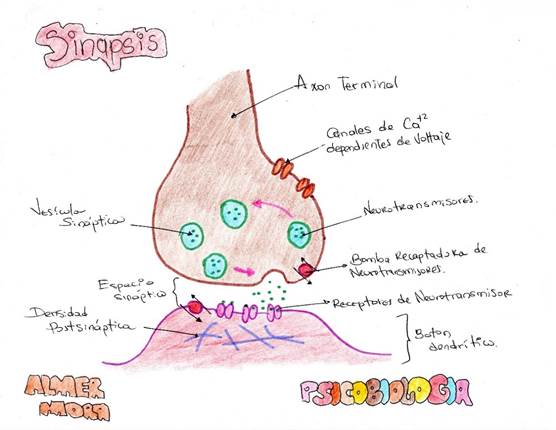 Sinapsis
Axon Terminal
Canales de Ca+2
dependientes de Voltaje
Vesícula
Sináptica
Neurotransmisores.
Bomba Recaptadora de
Neurotransmisores.
Espacio
Sináptico
Receptores de Neurotransmisor
Densidad
Postsináptica
Boton
dendrítico.
ALMER
MORA
PSICOBIOLOGIA